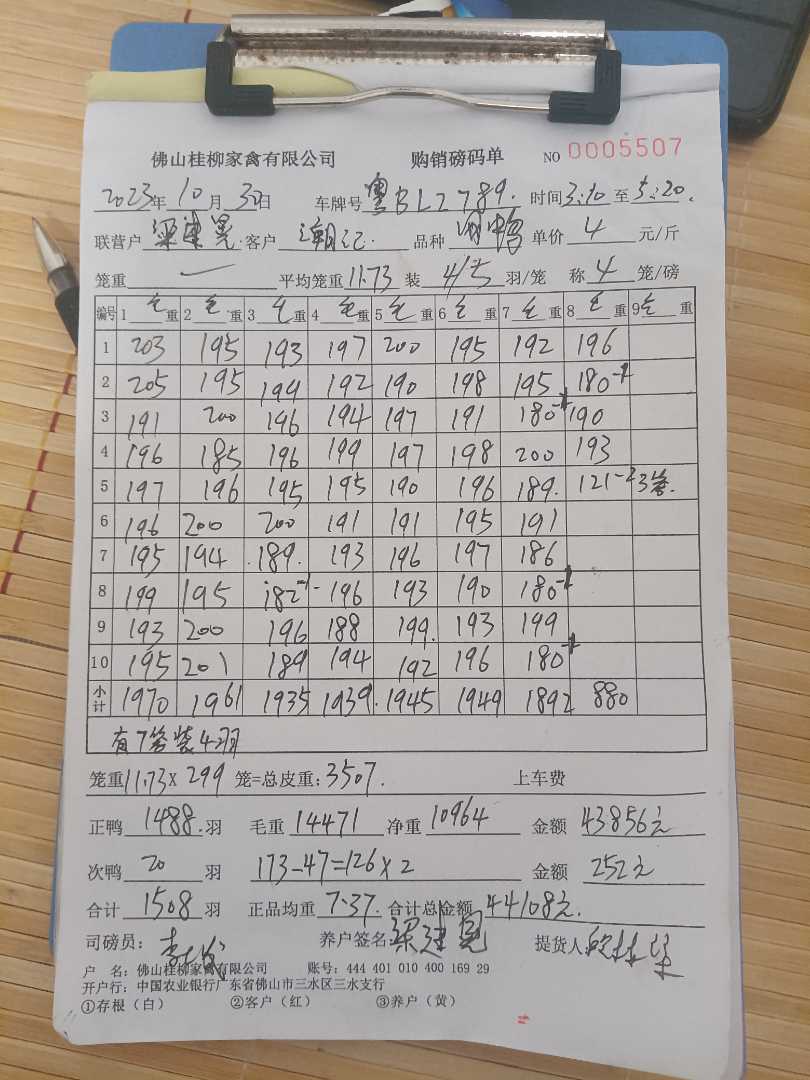 佛山桂柳家禽有限公司 购销磅码单 NO 0005507
2023年10月30日 车牌号 粤BL2789. 时间3:10至5:20.
联营户 客户 潮记. 品种 单价 4 元/斤
笼重 平均笼重11.73 装 4/5 羽/笼 称 4 笼/磅
编号 1 毛重 2 毛重 3 毛重 4 毛重 5 毛重 6 毛重 7 毛重 8 毛重 9 毛重
1 203 195 193 197 200 195 192 196
2 205 195 199 192 190 198 195 180-1
3 191 200 196 194 197 191 180-1 190
4 196 185 196 199 197 198 200 193
5 197 196 195 195 190 196 189. 121-2 3笼.
6 196 200 200 191 191 195 191
7 195 194 189. 193 196 197 186
8 199 195 182-1 196 193 190 180-1
9 193 200 196 188 199. 193 199
10 195 201 189 194 192 196 180-1
小计 1970 1961 1935 1939. 1945 1949 1892 880
有7笼装4羽
笼重11.73X 299 笼=总皮重: 3507. 上车费
正鸭 1488.羽 毛重 14471 净重 10964 金额 43856元
次鸭 20 羽 173-47=126X2 金额 252元
合计 1508 羽 正品均重 7.37. 合计总金额 44108元.
司磅员: 养户签名 提货人
户 名: 佛山桂柳家禽有限公司 账号: 444 401 010 400 169 29
开户行: 中国农业银行广东省佛山市三水区三水支行
①存根(白) ②客户(红) ③养户(黄)